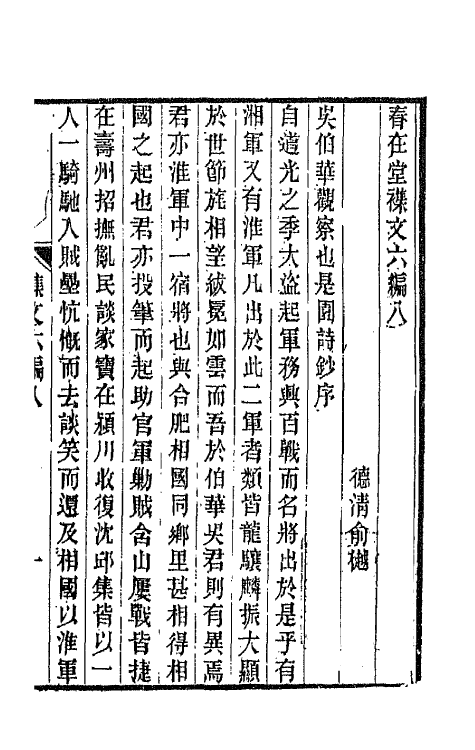 春在堂襍文六編八
德淸俞樾
吳伯華觀察也是園詩鈔序
自道光之季大盜起軍務興百戰而名將出於是乎有
湘軍又有淮軍凡出於此二軍者類皆龍驤麟振大顯
於世節旄相望紱冕如雲而吾於伯華吳君則有異焉
君亦淮軍中一宿將也與合肥相國同鄉里甚相得相
國之起也君亦投筆而起助官軍勦賊含山屢戰皆捷
在壽州招撫亂民談家寶在潁川收復沈邱集皆以一
人一騎馳入賊壘忼慨而去談笑而還及相國以淮軍
襍文六編八
一